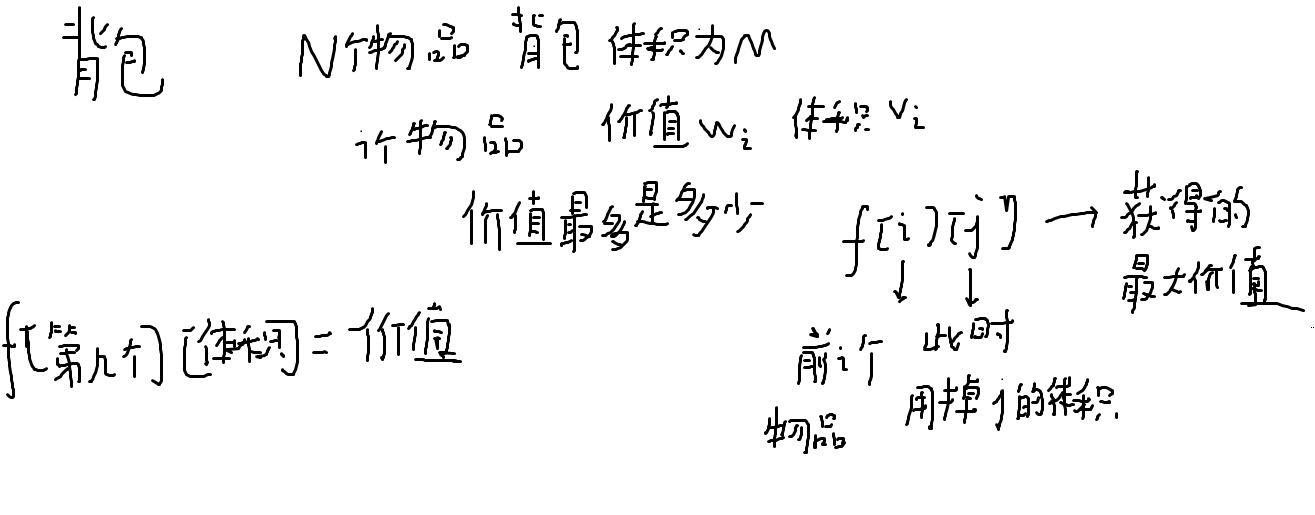 背包 N个物品 背包体积为M
i个物品 价值wi 体积vi
价值最多是多少
f[i][j] → 获得的
最大价值
f[第几个][体积] = 价值
前i个 此时
物品 用掉j的体积